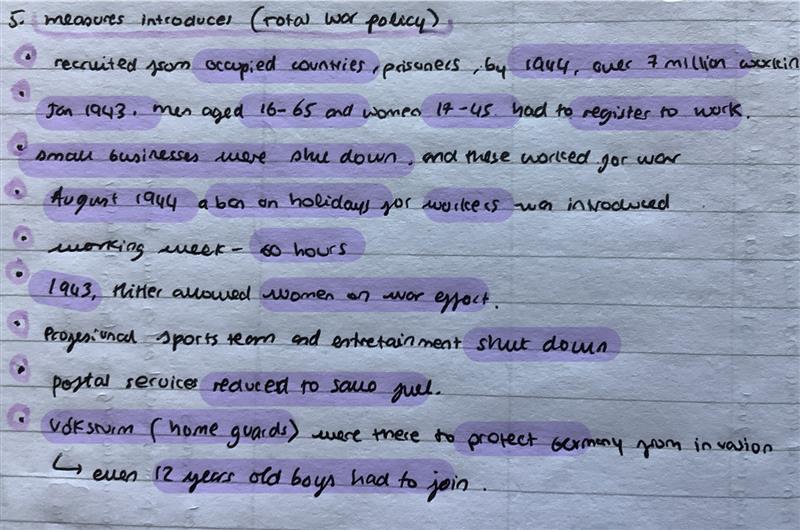 5. measures introduces (Total war policy)
• recruited from occupied countries, prisoners, by 1944, over 7 million workin
• Jan 1943. men aged 16-65 and women 17-45. had to register to work.
• small businesses were shut down, and these worked for war
• August 1944 a ban on holidays for workers was introduced
• working week - 60 hours
• 1943, Hitler allowed women on war effort.
• Profesional sports team and entretainment shut down
• postal services reduced to save fuel.
• Volksturm (home guards) were there to protect Germany from invasion
↳ even 12 years old boys had to join.